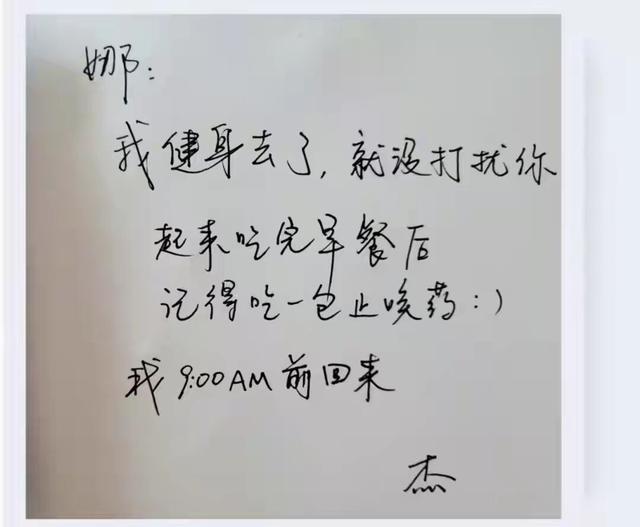 娜：
我健身去了，就没打扰你
起来吃完早餐后
记得吃一包止咳药：)
我 9:00AM 前回来
杰